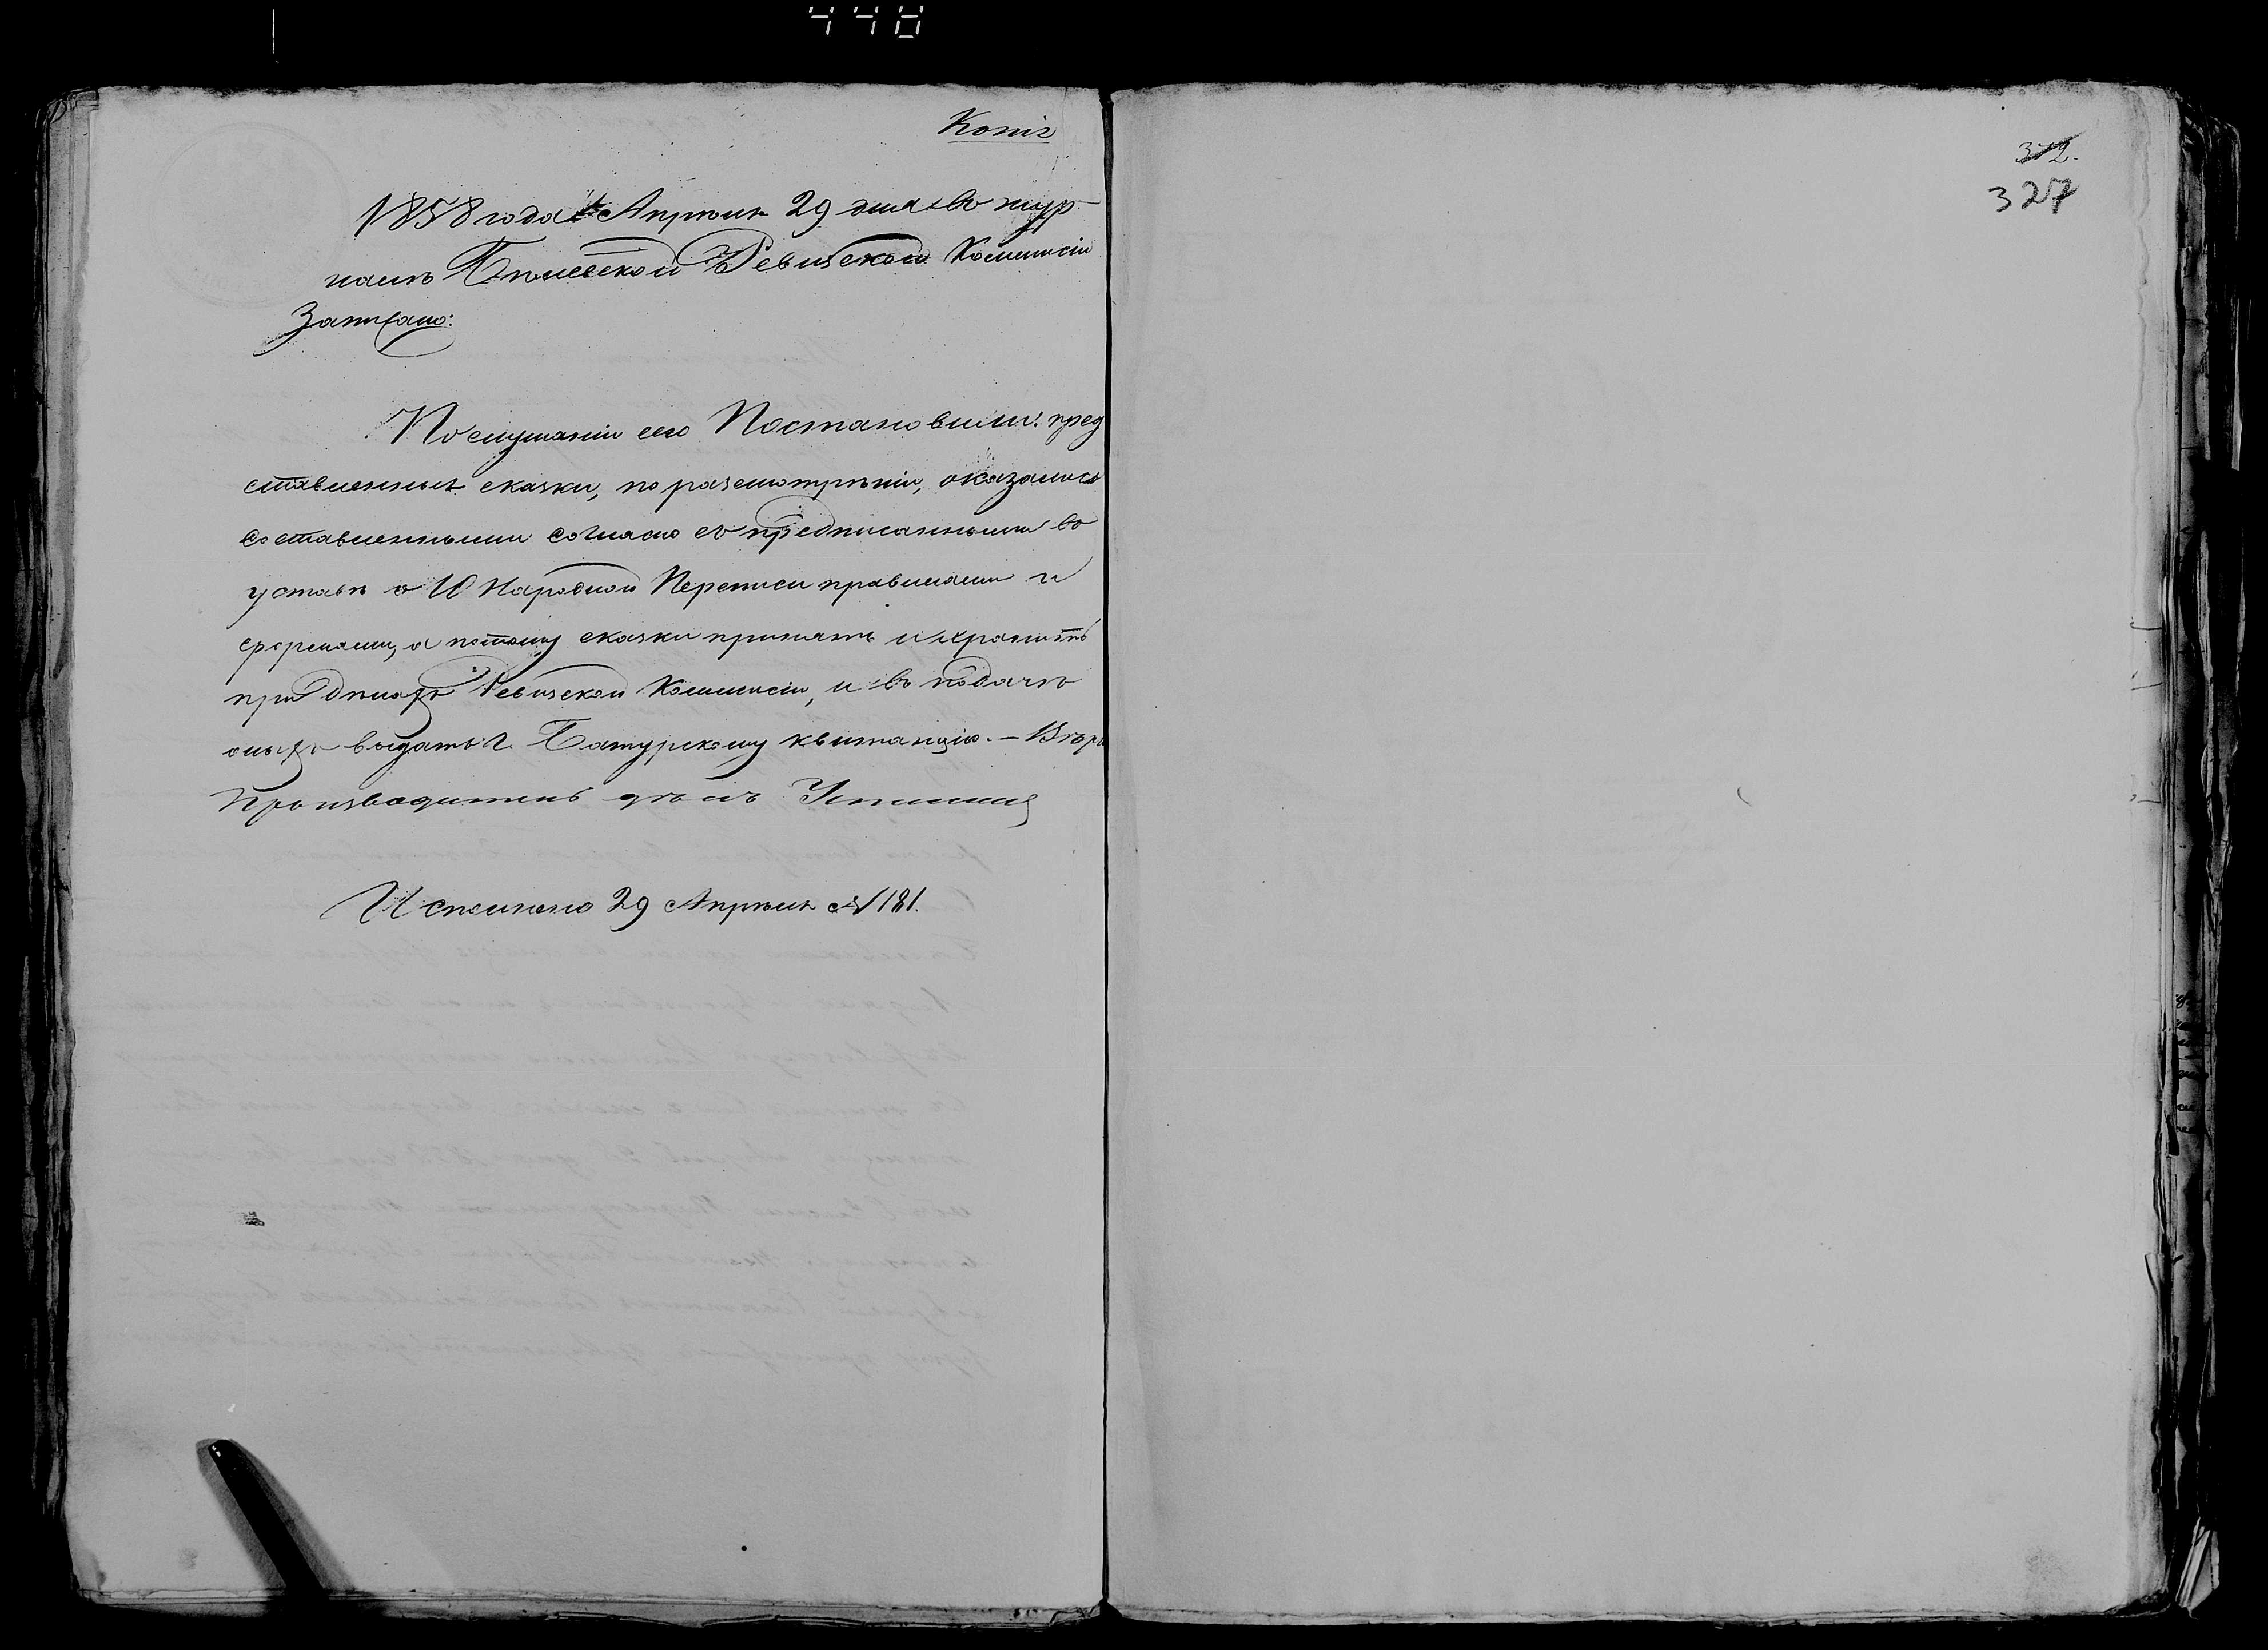 448
Копія
372.
327
1858 года Апрѣля 29 дня въ жур-
налѣ Бѣлевской Ревизской Коммисіи
Записано:
По слушаніи сего Постановили: пред
ставленныя сказки, по разсмотрѣніи, оказались
составленными согласно съ предписанными въ
уставѣ о 10 Народной Переписи правилами и
формами, а потому сказки принять и хранить
при дѣлахъ Ревизской Коммисіи, и въ подачѣ
оныхъ выдать г. Батурскому квитанцію. – Вѣрн
Производитель дѣлъ
Исполнено 29 Апрѣля № 181.